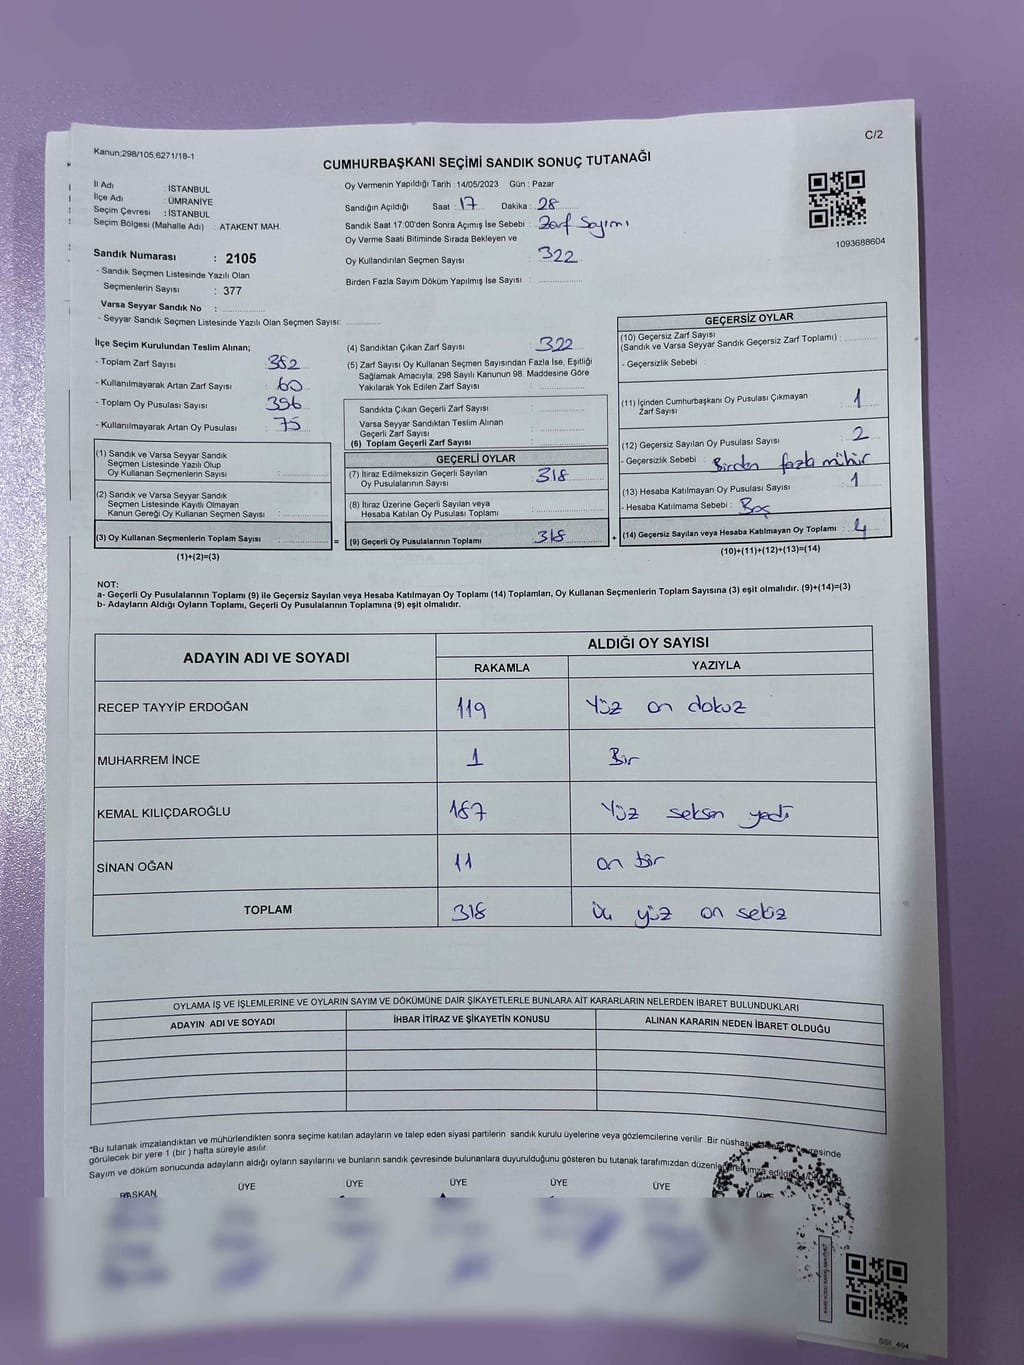 C/2
Kanun;298/105;6271/18-1
CUMHURBAŞKANI SEÇİMİ SANDIK SONUÇ TUTANAĞI
İl Adı : İSTANBUL
İlçe Adı : ÜMRANİYE
Seçim Çevresi : İSTANBUL
Seçim Bölgesi (Mahalle Adı) : ATAKENT MAH.
Oy Vermenin Yapıldığı Tarih :14/05/2023 Gün : Pazar
Sandığın Açıldığı Saat : 17 Dakika : 28
Sandık Saat 17:00'den Sonra Açımış İse Sebebi : Zarf Sayımı
Oy Verme Saati Bitiminde Sırada Bekleyen ve
Oy Kullandırılan Seçmen Sayısı : 322
Birden Fazla Sayım Döküm Yapılmış İse Sayısı :
1093688604
Sandık Numarası : 2105
- Sandık Seçmen Listesinde Yazılı Olan
Seçmenlerin Sayısı : 377
Varsa Seyyar Sandık No :
- Seyyar Sandık Seçmen Listesinde Yazılı Olan Seçmen Sayısı:
İlçe Seçim Kurulundan Teslim Alınan;
- Toplam Zarf Sayısı : 382
- Kullanılmayarak Artan Zarf Sayısı : 60
- Toplam Oy Pusulası Sayısı : 396
- Kullanılmayarak Artan Oy Pusulası : 75
(1) Sandık ve Varsa Seyyar Sandık
Seçmen Listesinde Yazılı Olup
Oy Kullanan Seçmenlerin Sayısı :
(2) Sandık ve Varsa Seyyar Sandık
Seçmen Listesinde Kayıtlı Olmayan
Kanun Gereği Oy Kullanan Seçmen Sayısı :
(3) Oy Kullanan Seçmenlerin Toplam Sayısı :
=
(1)+(2)=(3)
(4) Sandıktan Çıkan Zarf Sayısı : 322
(5) Zarf Sayısı Oy Kullanan Seçmen Sayısından Fazla İse, Eşitliği
Sağlamak Amacıyla, 298 Sayılı Kanunun 98. Maddesine Göre
Yakılarak Yok Edilen Zarf Sayısı :
Sandıkta Çıkan Geçerli Zarf Sayısı :
Varsa Seyyar Sandıktan Teslim Alınan
Geçerli Zarf Sayısı :
(6) Toplam Geçerli Zarf Sayısı :
GEÇERLİ OYLAR
(7) İtiraz Edilmeksizin Geçerli Sayılan
Oy Pusulalarının Sayısı : 318
(8) İtiraz Üzerine Geçerli Sayılan veya
Hesaba Katılan Oy Pusulası Toplamı :
(9) Geçerli Oy Pusulalarının Toplamı : 318
+
GEÇERSİZ OYLAR
(10) Geçersiz Zarf Sayısı
(Sandık ve Varsa Seyyar Sandık Geçersiz Zarf Toplamı) :
- Geçersizlik Sebebi :
(11) İçinden Cumhurbaşkanı Oy Pusulası Çıkmayan
Zarf Sayısı : 1
(12) Geçersiz Sayılan Oy Pusulası Sayısı : 2
- Geçersizlik Sebebi : Birden fazla mühür
(13) Hesaba Katılmayan Oy Pusulası Sayısı : 1
- Hesaba Katılmama Sebebi : Boş
(14) Geçersiz Sayılan veya Hesaba Katılmayan Oy Toplamı : 4
(10)+(11)+(12)+(13)=(14)
NOT:
a- Geçerli Oy Pusulalarının Toplamı (9) ile Geçersiz Sayılan veya Hesaba Katılmayan Oy Toplamı (14) Toplamları, Oy Kullanan Seçmenlerin Toplam Sayısına (3) eşit olmalıdır. (9)+(14)=(3)
b- Adayların Aldığı Oyların Toplamı, Geçerli Oy Pusulalarının Toplamına (9) eşit olmalıdır.
ADAYIN ADI VE SOYADI
ALDIĞI OY SAYISI
RAKAMLA YAZIYLA
RECEP TAYYİP ERDOĞAN 119 Yüz on dokuz
MUHARREM İNCE 1 Bir
KEMAL KILIÇDAROĞLU 187 Yüz seksen yedi
SİNAN OĞAN 11 on bir
TOPLAM 318 üç yüz on sekiz
OYLAMA İŞ VE İŞLEMLERİNE VE OYLARIN SAYIM VE DÖKÜMÜNE DAİR ŞİKAYETLERLE BUNLARA AİT KARARLARIN NELERDEN İBARET BULUNDUKLARI
ADAYIN ADI VE SOYADI İHBAR İTİRAZ VE ŞİKAYETİN KONUSU ALINAN KARARIN NEDEN İBARET OLDUĞU
*Bu tutanak imzalandıktan ve mühürlendikten sonra seçime katılan adayların ve talep eden siyasi partilerin sandık kurulu üyelerine veya gözlemcilerine verilir. Bir nüshası
görülecek bir yere 1 (bir) hafta süreyle asılır.
Sayım ve döküm sonucunda adayların aldığı oyların sayılarını ve bunların sandık çevresinde bulunanlara duyurulduğunu gösteren bu tutanak tarafımızdan
BAŞKAN ÜYE ÜYE ÜYE ÜYE ÜYE ÜYE
SSI_404